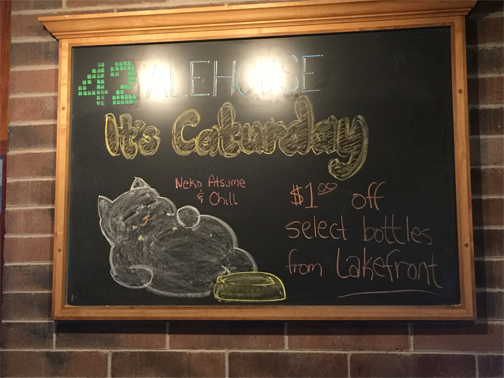 42 ALEHOUSE
It's Caturday
Neko Atsume
& Chill
$1.00 off
select bottles
from Lakefront